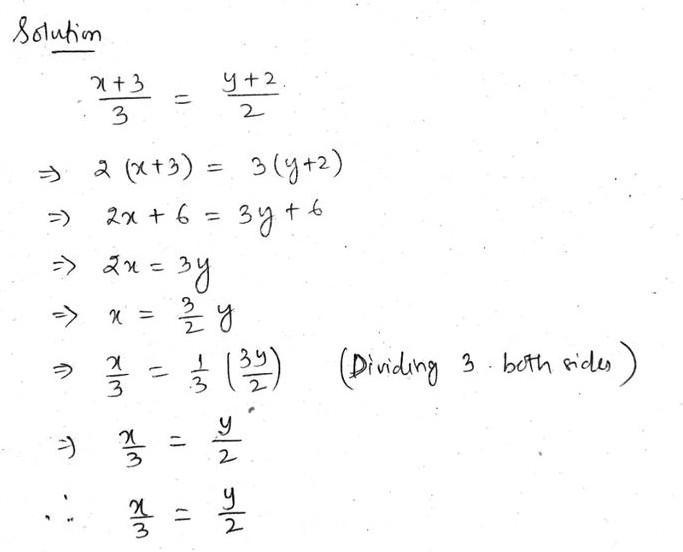 Solution
x+3/3 = y+2/2
⇒ 2 (x+3) = 3(y+2)
⇒ 2x + 6 = 3y + 6
⇒ 2x = 3y
⇒ x = 3/2 y
⇒ x/3 = 1/3 (3y/2) (Dividing 3 both sides)
⇒ x/3 = y/2
∴ x/3 = y/2